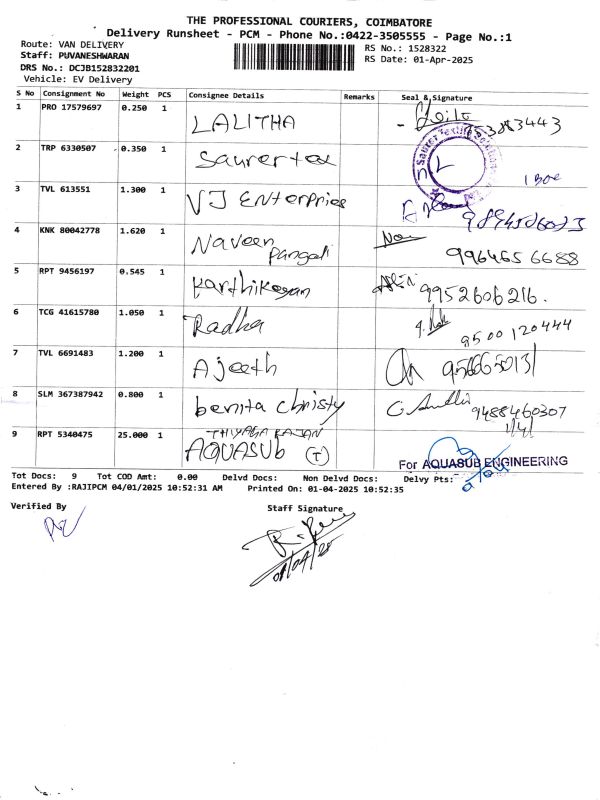 THE PROFESSIONAL COURIERS, COIMBATORE
Delivery Runsheet - PCM - Phone No.:0422-3505555 - Page No.:1
Route: VAN DELIVERY
RS No.: 1528322
Staff: PUVANESHWARAN
RS Date: 01-Apr-2025
DRS No.: DCJB152832201
Vehicle: EV Delivery
S No Consignment No Weight PCS Consignee Details Remarks Seal & Signature
1 PRO 17579697 0.250 1 LALITHA
2 TRP 6330507 0.350 1 Saurertex
Saurer Textile
1 Box
3 TVL 613551 1.300 1 VJ Enterprises
4 KNK 80042778 1.620 1 Naveen
Pangali 9964656688
5 RPT 9456197 0.545 1 Karthikeyan 9952606216.
6 TCG 41615780 1.050 1 Radha 9500120444
7 TVL 6691483 1.200 1 Ajeeth
8 SLM 367387942 0.800 1 benita christy 9488460307
1/4/
9 RPT 5340475 25.000 1 THIYAGA RAJAN
AQUASUb (T)
For AQUASUB ENGINEERING
Tot Docs: 9 Tot COD Amt: 0.00 Delvd Docs: Non Delvd Docs: Delvy Pts:
Entered By :RAJIPCM 04/01/2025 10:52:31 AM Printed On: 01-04-2025 10:52:35
Verified By
Staff Signature
01/04/25